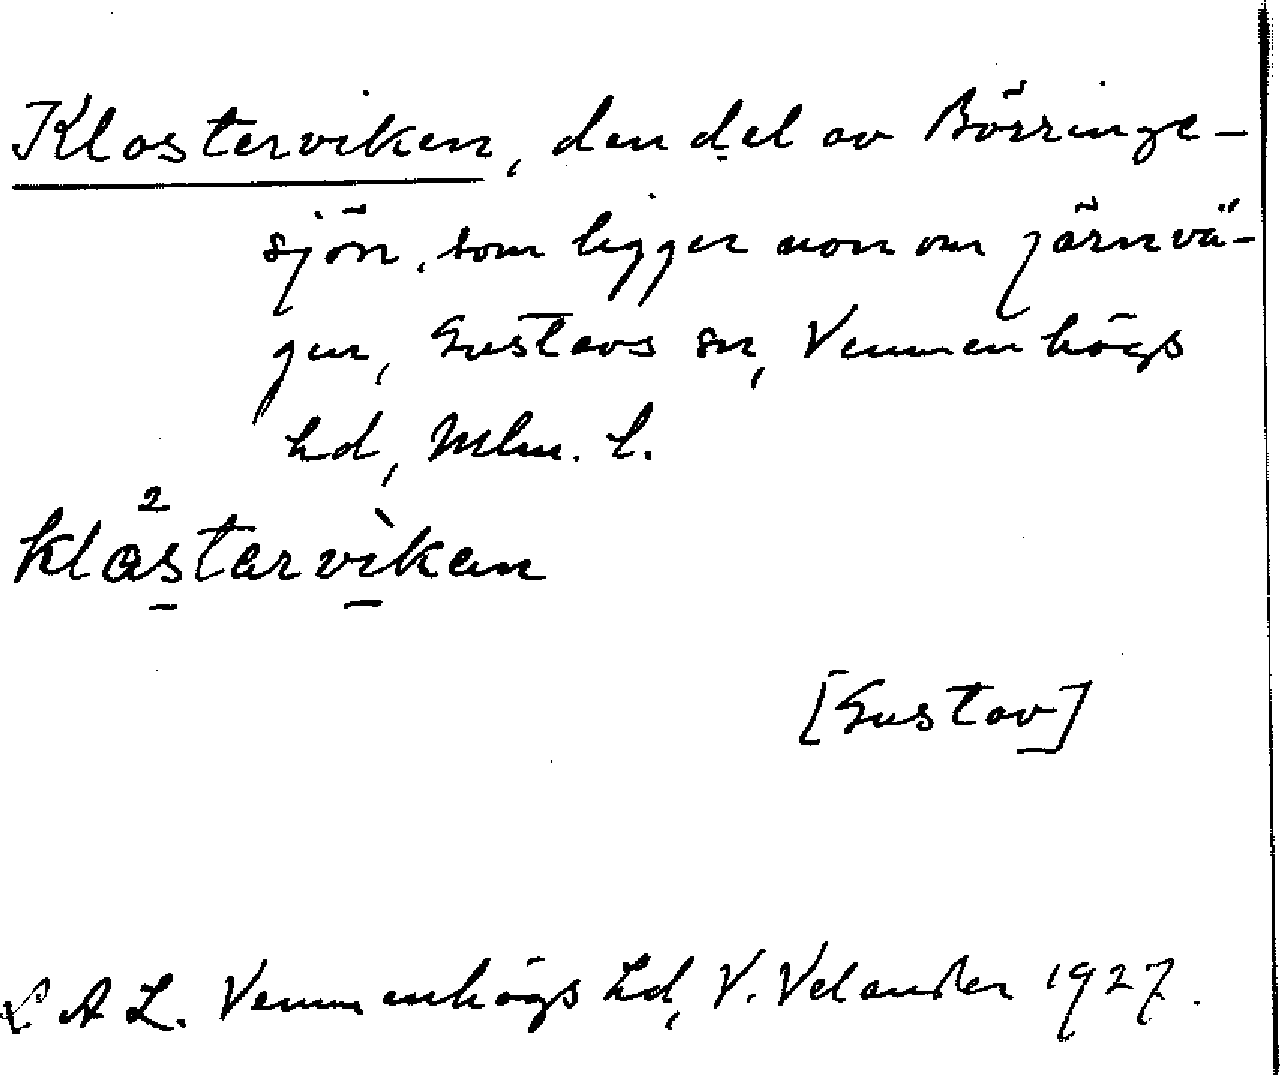 Klosterviken, den del av Börringe-
sjön, som ligger norr om järnvä-
gen, Gustavs sn, Vemmenhögs
hd, Mlm. l.
2
klåstarvìkan
[Gustav]
L A L. Vemmenhögs hd, V. Velander 1927.